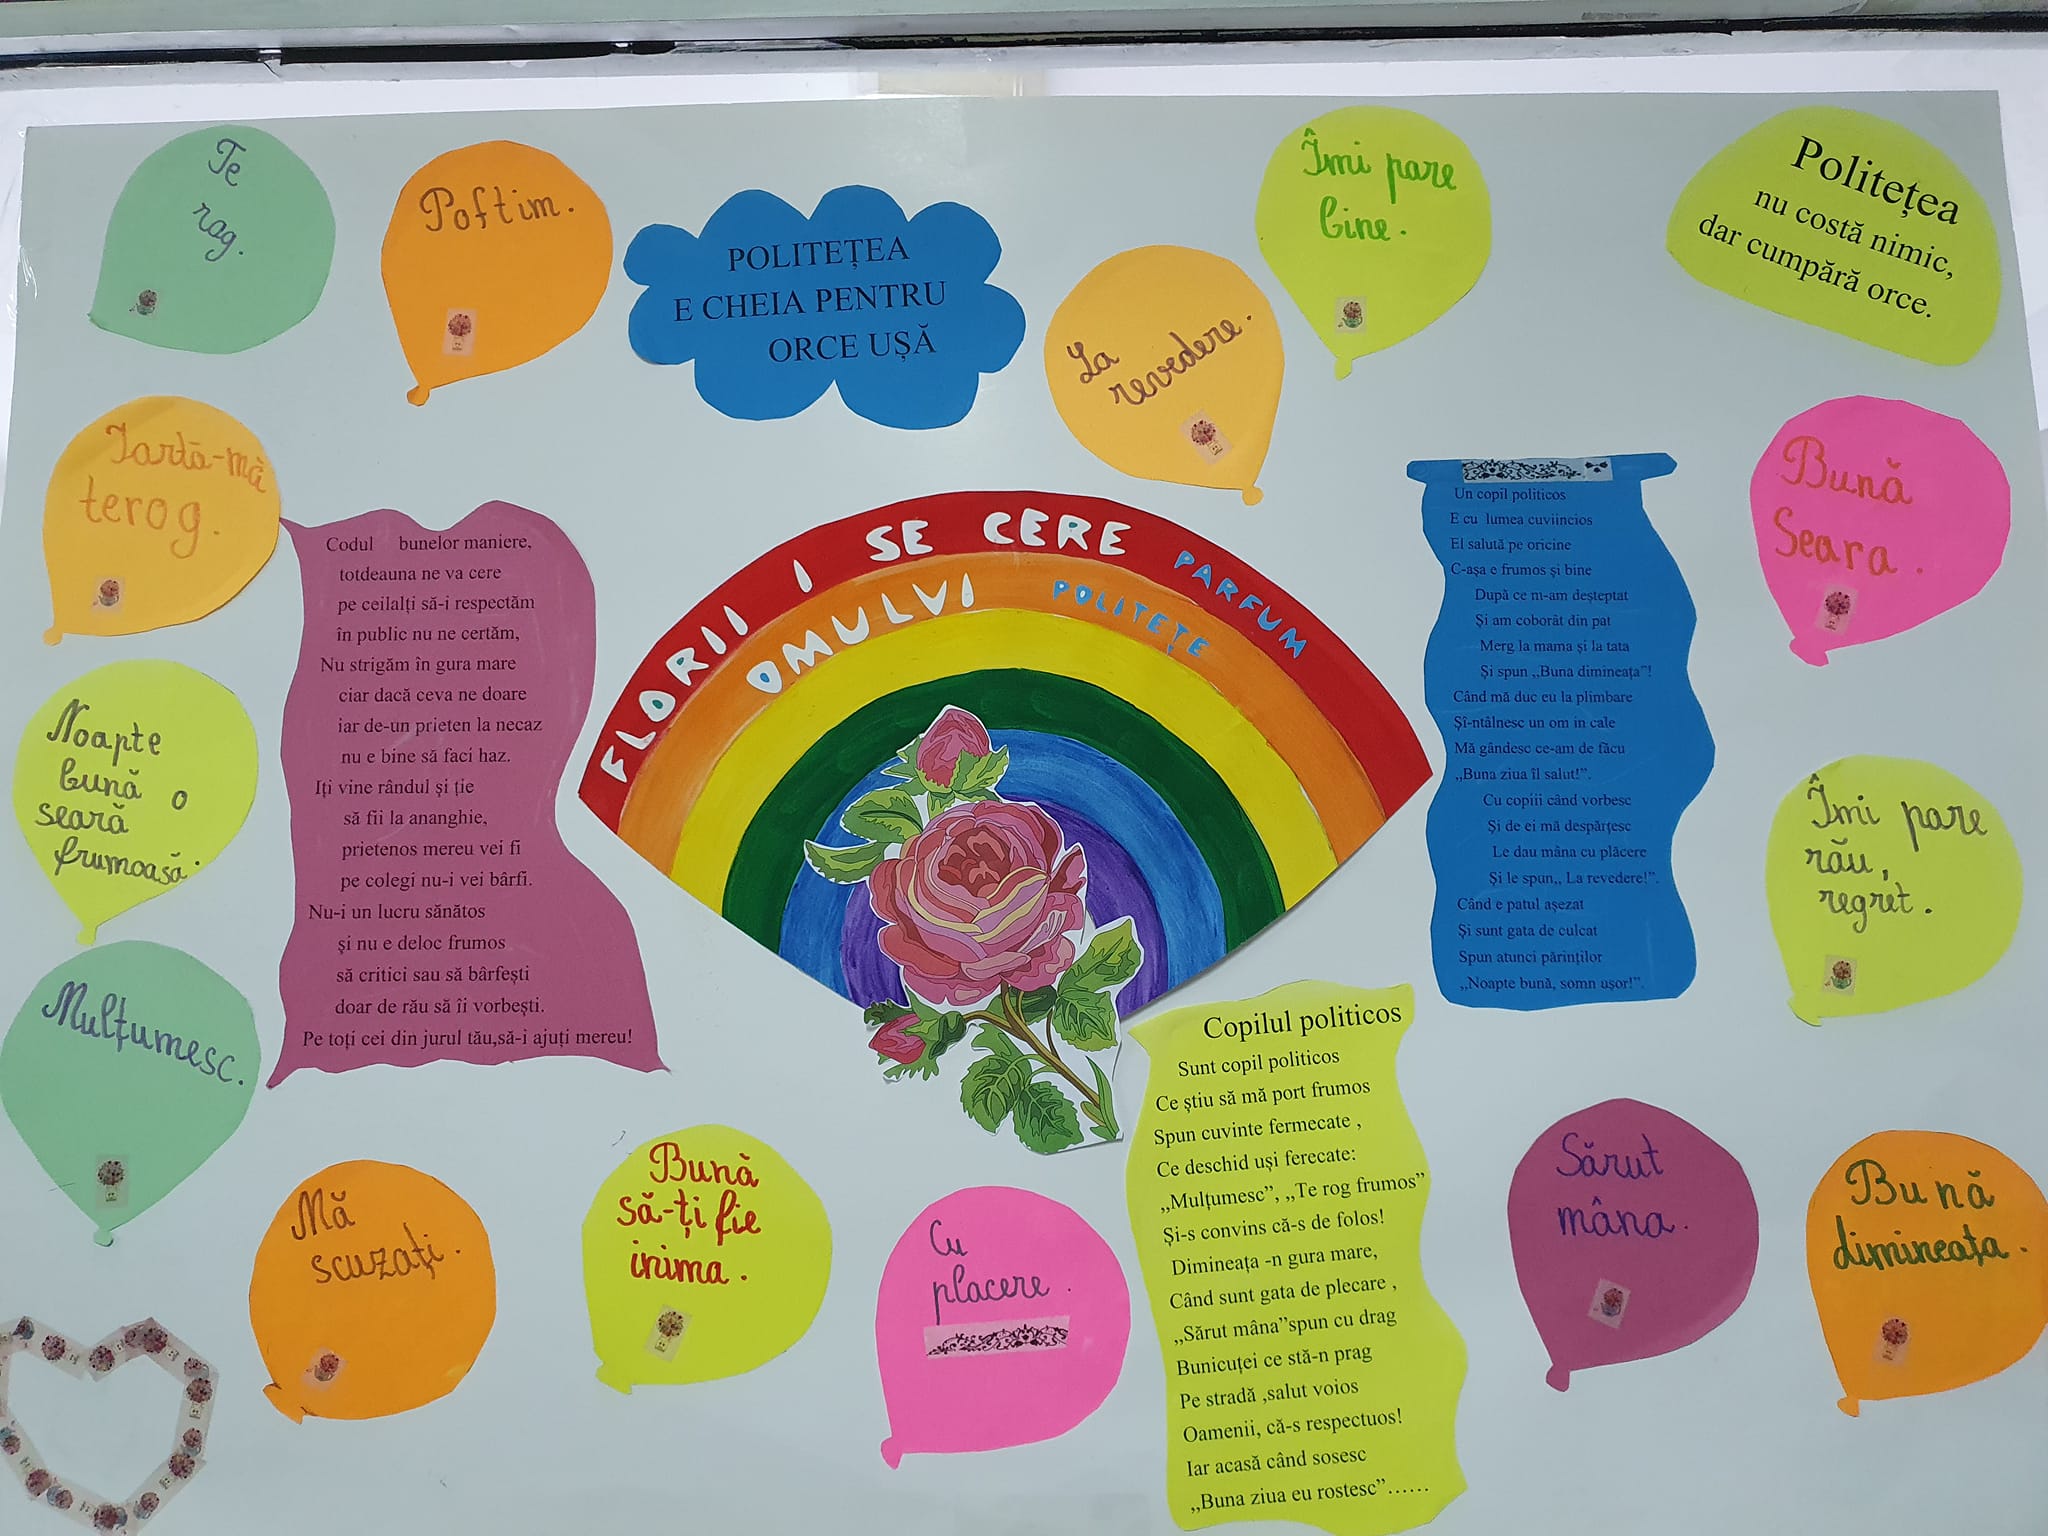 Te
rog.
Poftim.
POLITEȚEA
E CHEIA PENTRU
ORCE UȘĂ
La
revedere.
Îmi pare
bine.
Politețea
nu costă nimic,
dar cumpără orce.
Iartă-mă
terog.
Noapte
bună o
seară
frumoasă.
Mulțumesc.
Codul bunelor maniere,
totdeauna ne va cere
pe ceilalți să-i respectăm
în public nu ne certăm,
Nu strigăm în gura mare
ciar dacă ceva ne doare
iar de-un prieten la necaz
nu e bine să faci haz.
Iți vine rândul și ție
să fii la ananghie,
prietenos mereu vei fi
pe colegi nu-i vei bârfi.
Nu-i un lucru sănătos
și nu e deloc frumos
să critici sau să bârfești
doar de rău să îi vorbești.
Pe toți cei din jurul tău,să-i ajuți mereu!
FLORII I SE CERE PARFUM
OMULVI POLITEȚE
Un copil politicos
E cu lumea cuviincios
El salută pe oricine
C-așa e frumos și bine
După ce m-am deșteptat
Și am coborât din pat
Merg la mama și la tata
Și spun ,,Buna dimineața”!
Când mă duc eu la plimbare
Șî-ntâlnesc un om in cale
Mă gândesc ce-am de făcu
,,Buna ziua îl salut!”.
Cu copiii când vorbesc
Și de ei mă despărțesc
Le dau mâna cu plăcere
Și le spun,, La revedere!”.
Când e patul așezat
Și sunt gata de culcat
Spun atunci părinților
,,Noapte bună, somn ușor!”.
Bună
Seara.
Îmi pare
rău,
regret.
Copilul politicos
Sunt copil politicos
Ce știu să mă port frumos
Spun cuvinte fermecate ,
Ce deschid uși ferecate:
,,Mulțumesc”, ,,Te rog frumos”
Și-s convins că-s de folos!
Dimineața -n gura mare,
Când sunt gata de plecare ,
,,Sărut mâna”spun cu drag
Bunicuței ce stă-n prag
Pe stradă ,salut voios
Oamenii, că-s respectuos!
Iar acasă când sosesc
,,Buna ziua eu rostesc”……
Mă
scuzați.
Bună
să-ți fie
inima.
Cu
placere.
Sărut
mâna.
Bună
dimineața.